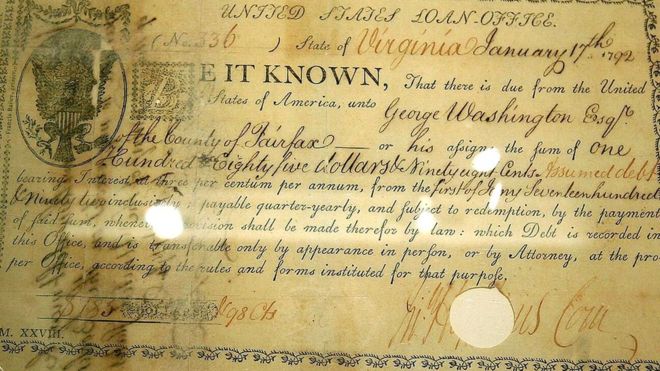 UNITED STATES LOAN-OFFICE.
(No. 336 ) State of Virginia January 17th 1792
BE IT KNOWN, That there is due from the United
States of America, unto George Washington Esqr.
of the County of Fairfax — or his assigns, the sum of one
Hundred & Eighty five dollars & Ninety eight Cents Assumed debt
bearing Interest, at three per centum per annum, from the first of Jany Seventeen hundred
& Ninety two inclusively, payable quarter-yearly, and subject to redemption, by the payment
of said sum, whenever provision shall be made therefor by law: which Debt is recorded in
this Office, and is transferable only by appearance in person, or by Attorney, at the
per Office, according to the rules and forms instituted for that purpose.
$185 98 Cts
M. XXVIII.